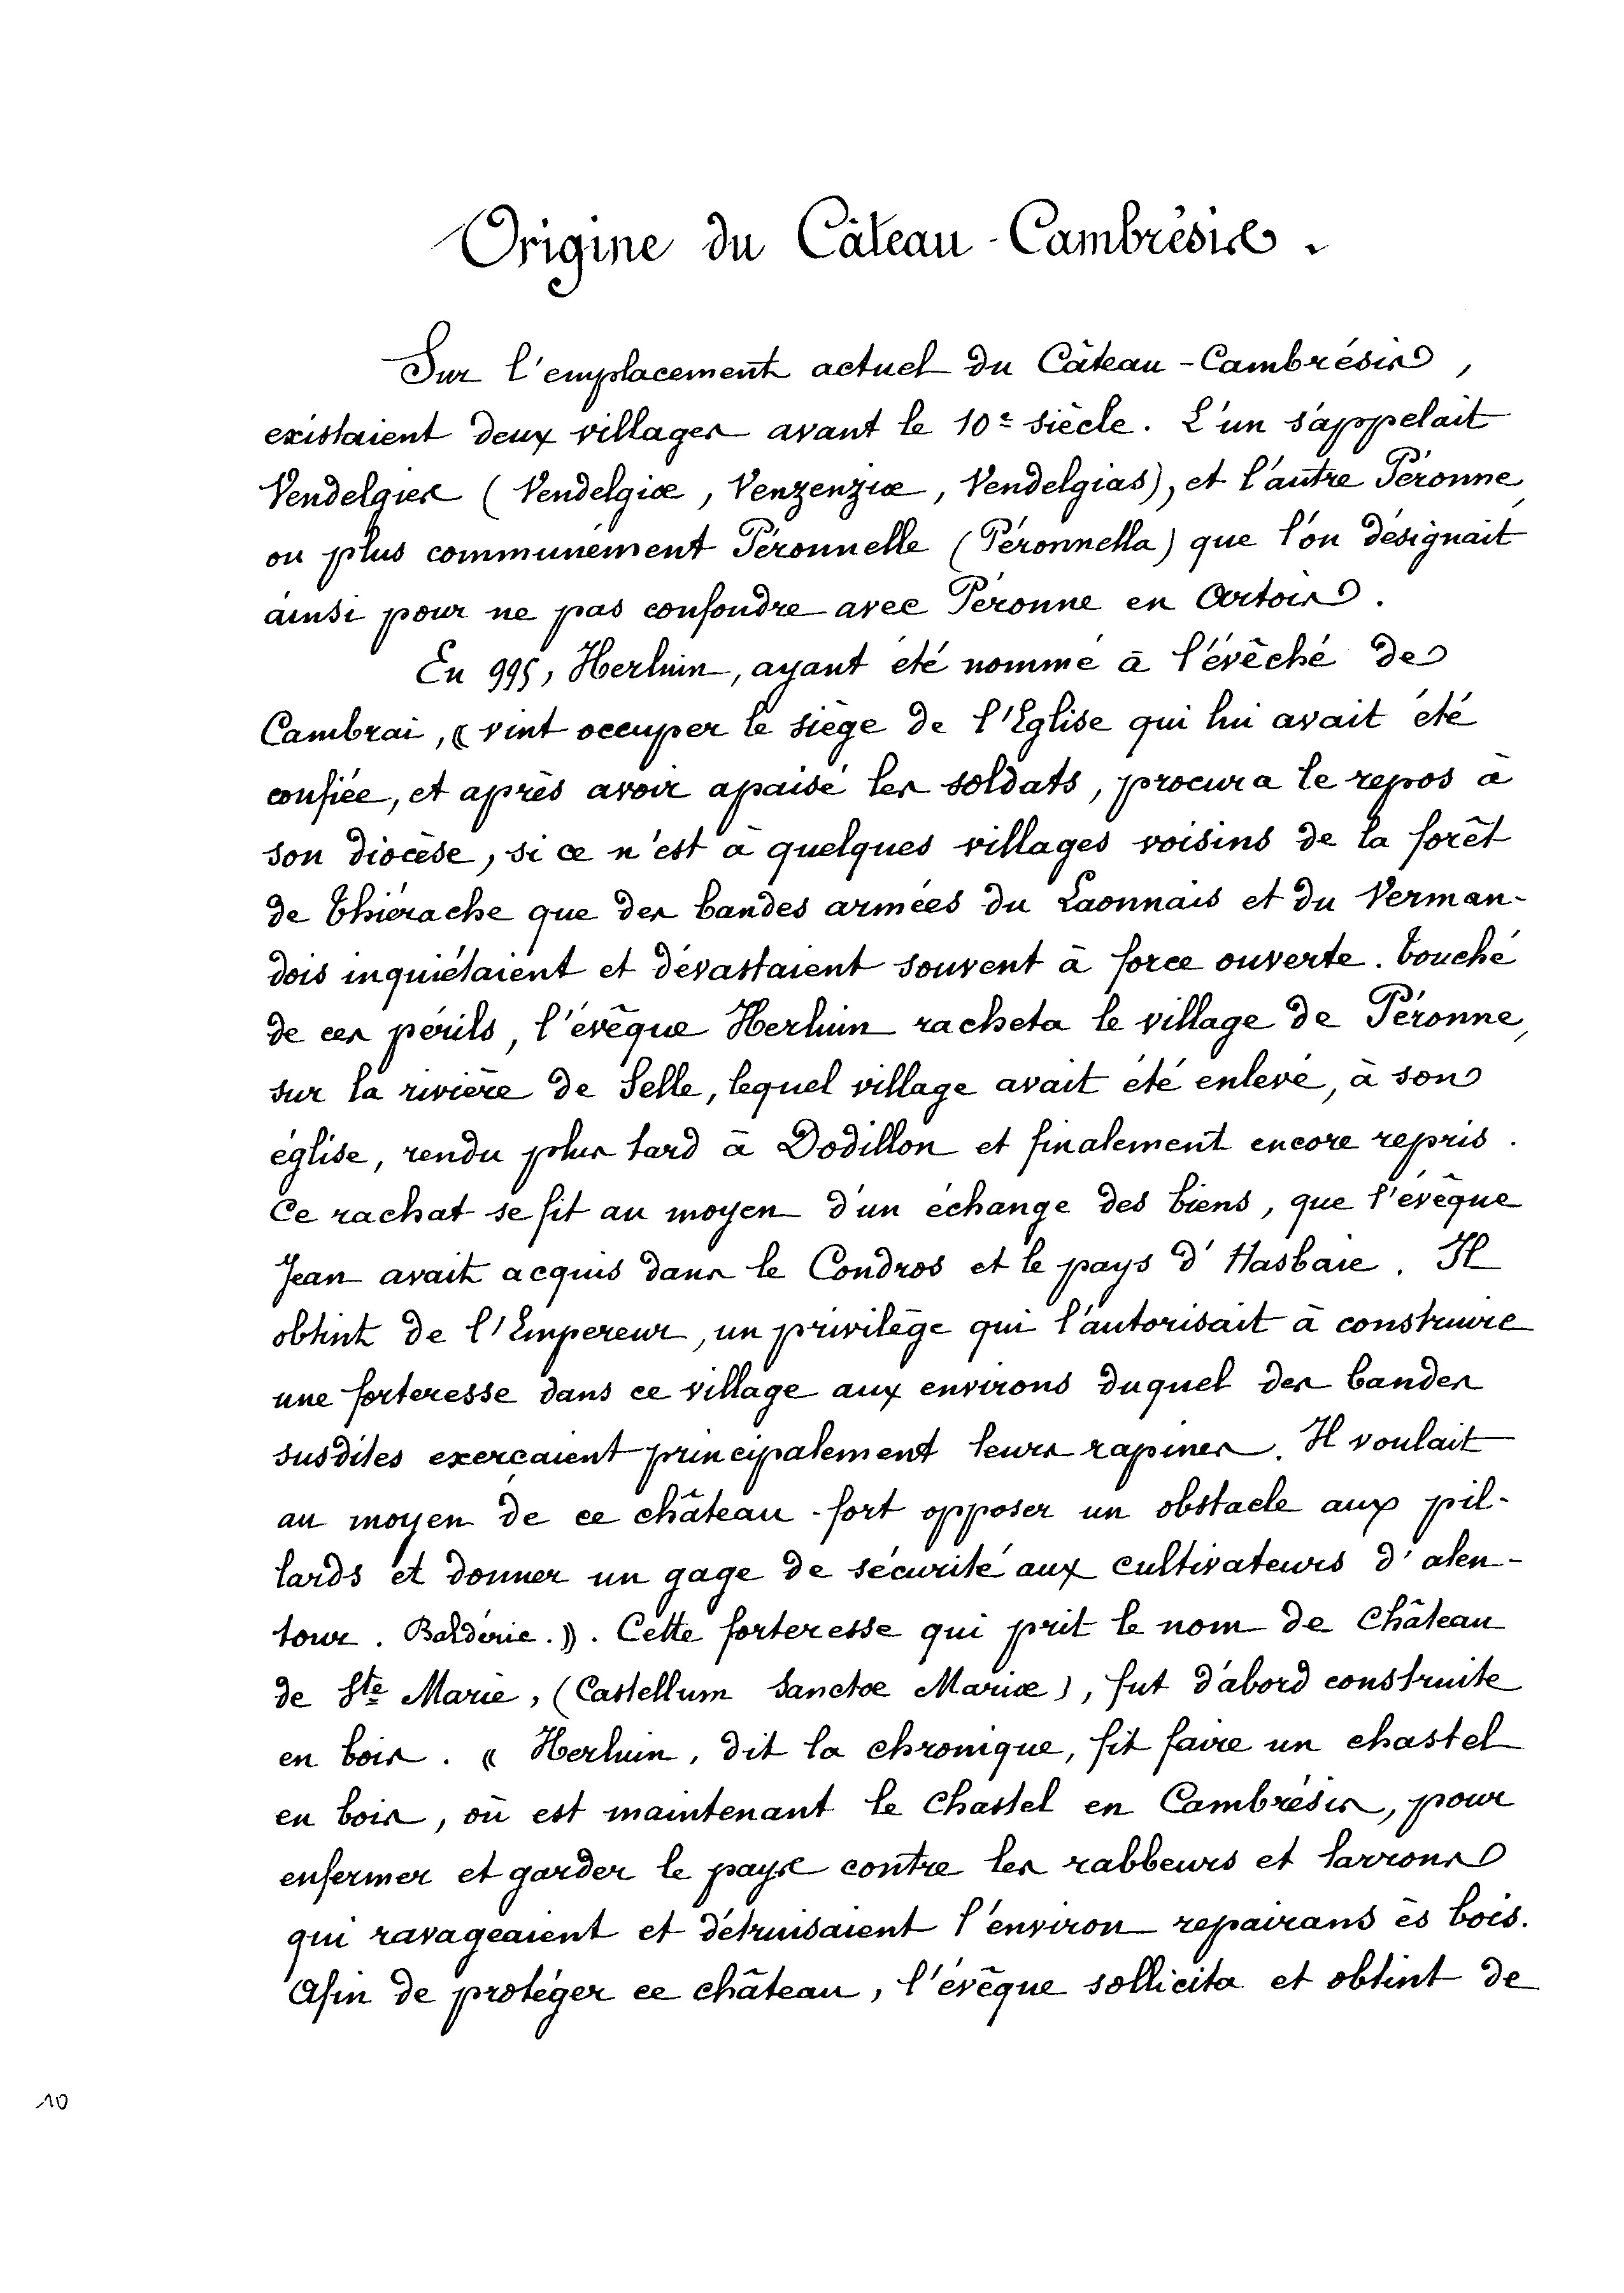 Origine du Câteau-Cambrésis.
Sur l'emplacement actuel du Câteau-Cambrésis,
existaient deux villages avant le 10e siècle. L'un s'appelait
Vendelgies (Vendelgiæ, Venzenziæ, Vendelgias), et l'autre Péronne,
ou plus communément Péronnelle (Péronnella) que l'on désignait
ainsi pour ne pas confondre avec Péronne en Artois.
En 995, Herluin, ayant été nommé à l'évêché de
Cambrai, « vint occuper le siège de l'Eglise qui lui avait été
confiée, et après avoir apaisé les soldats, procura le repos à
son diocèse, si ce n'est à quelques villages voisins de la forêt
de Thiérache que des bandes armées du Laonnais et du Verman-
dois inquiétaient et dévastaient souvent à force ouverte. Touché
de ces périls, l'évêque Herluin racheta le village de Péronne,
sur la rivière de Selle, lequel village avait été enlevé, à son
église, rendu plus tard à Dodillon et finalement encore repris.
Ce rachat se fit au moyen d'un échange des biens, que l'évêque
Jean avait acquis dans le Condros et le pays d'Hasbaie. Il
obtint de l'Empereur, un privilège qui l'autorisait à construire
une forteresse dans ce village aux environs duquel des bandes
susdites exerçaient principalement leurs rapines. Il voulait
au moyen de ce château-fort opposer un obstacle aux pil-
lards et donner un gage de sécurité aux cultivateurs d'alen-
tour. Baldéric.». Cette forteresse qui prit le nom de Château
de Ste Marie, (Castellum Sanctœ Mariæ), fut d'abord construite
en bois. « Herluin, dit la chronique, fit faire un chastel
en bois, où est maintenant le Chastel en Cambrésis, pour
enfermer et garder le pays contre les rabbeurs et larrons
qui ravageaient et détruisaient l'environ repairans ès bois.
Afin de protéger ce château, l'évêque sollicita et obtint de
10